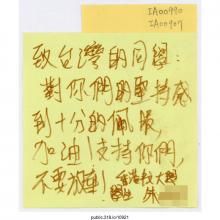 IA00990
IA00907
致台灣的同學：
對你們的堅持感
到十分的佩服，
加油！支持你們，
不要放棄！ 香港教大學
學生 朱
public.318.io/10921